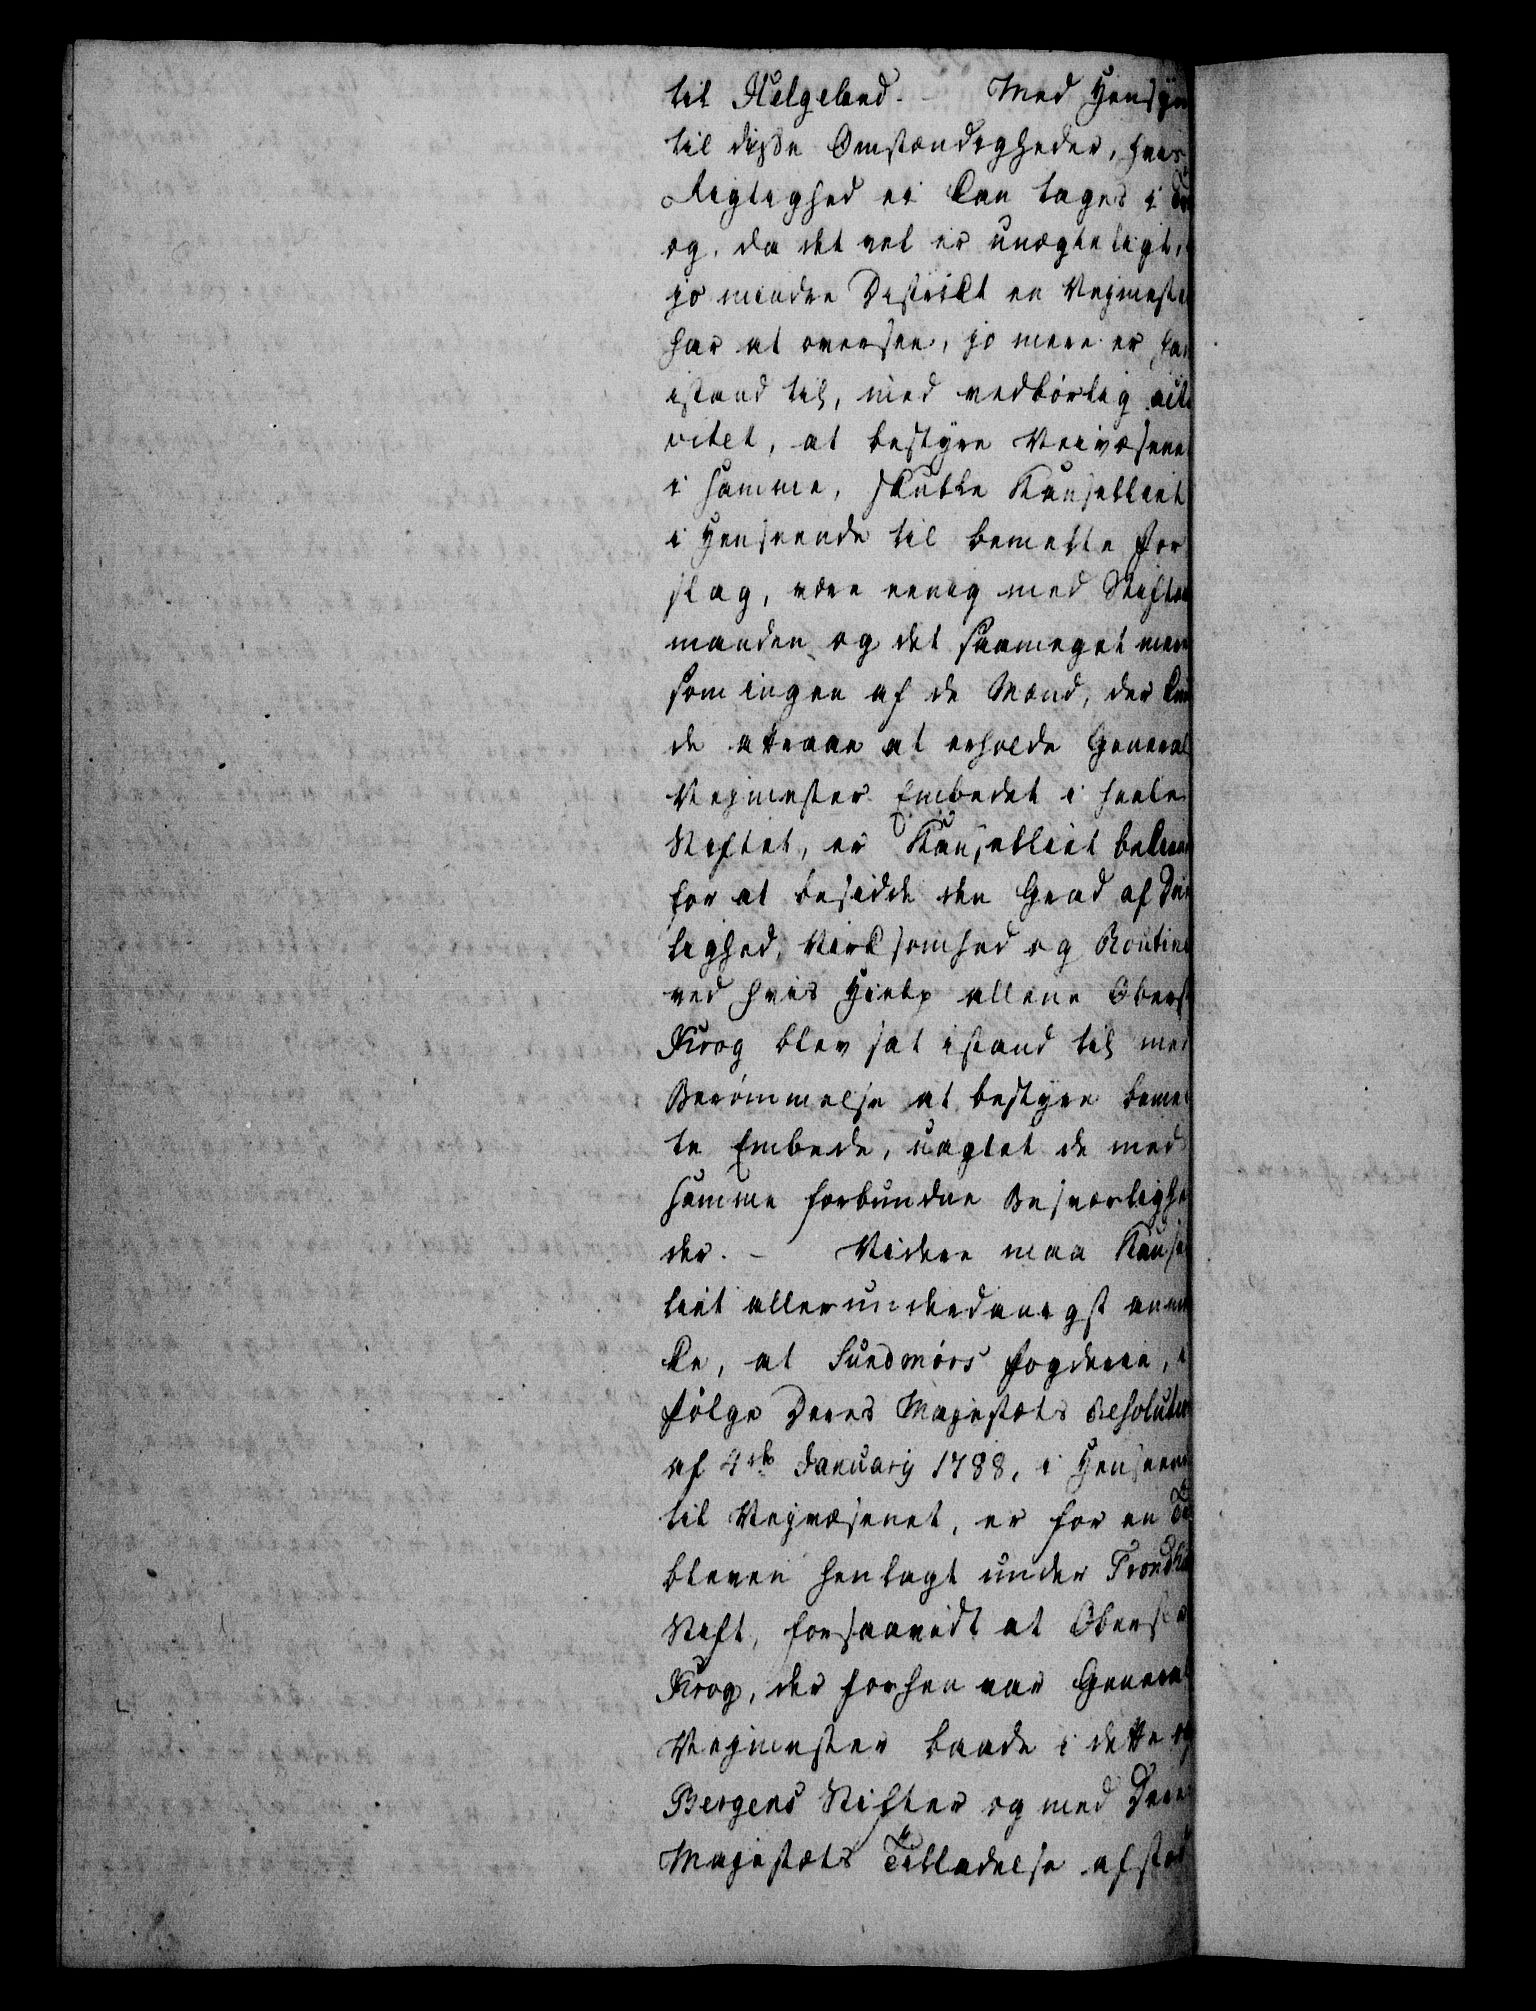 til Helgeland. - Med Hensyn
til disse Omstændigheder, hvis
Rigtighed ei kan tages i
og, da det vel er unægteligt,
jo mindre District en Vejmester
har at oversee, jo mere er han
istand til, med vedbørlig acti
vitet, at bestyre Veivæsenet
i samme, skulle Kanselliet
i Henseende til bemelte For
slag, være eenig med Stiftamt
manden og det saameget mere
som ingen af de Mænd, der kun
de attraae at erholde General
Vejmester Embedet i heele
Stiftet, er Kanselliet bekiendt
for at besidde den Grad af Due
lighed, Virksomhed og Routine
ved hvis Hielp allene Oberst
Krog blev sat istand til med
Berömmelse at bestyre bemel
te Embede, uagtet de med
samme forbundne Besværlighe
der. - Videre maa Kansel
liet allerunderdanigst anmær
ke, at Sundmörs Fogderie, i
fölge Deres Majestæts Resolution
af 4de January 1788, i Henseende
til Vejvæsenet, er for en Tid
bleven henlagt under Trondhiems
Stift, forsaavidt at Oberst v
Krog, der forhen var General
Vejmester baade i dette og
Bergens Stifter og med Deres
Majestæts Tilladelse afstod